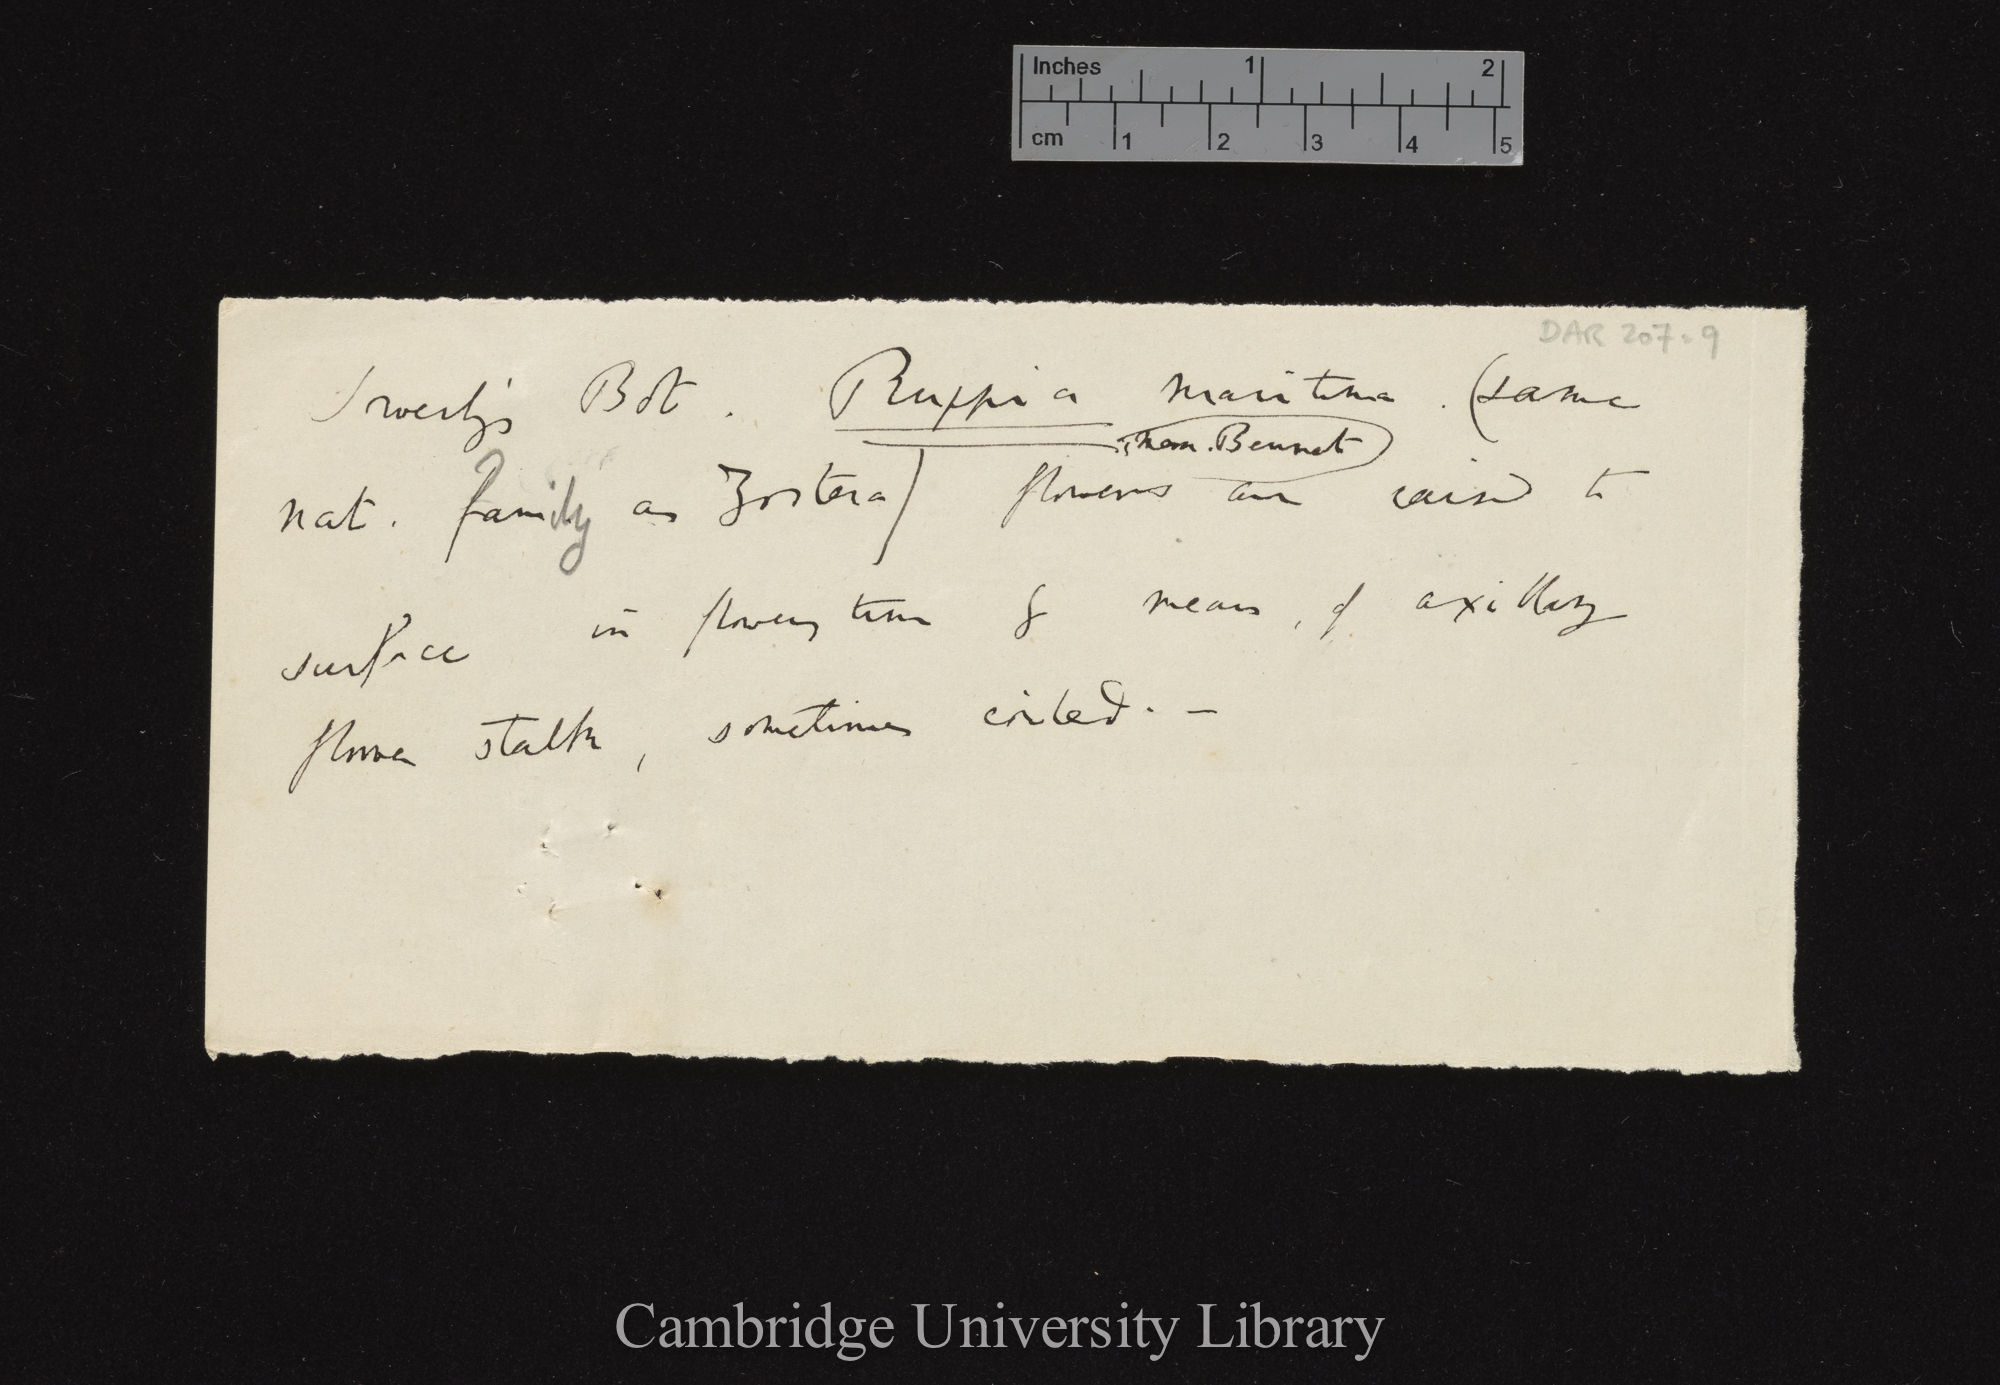 Inches 1 2
cm 1 2 3 4 5
DAR 207.9
Sowerby's Bot. Ruppia maritima. (same
Bennet
nat. family as Zostera) flowers are raised to
surface in flowering time by means, of axillary
flower stalk, sometimes coiled. —
Cambridge University Library